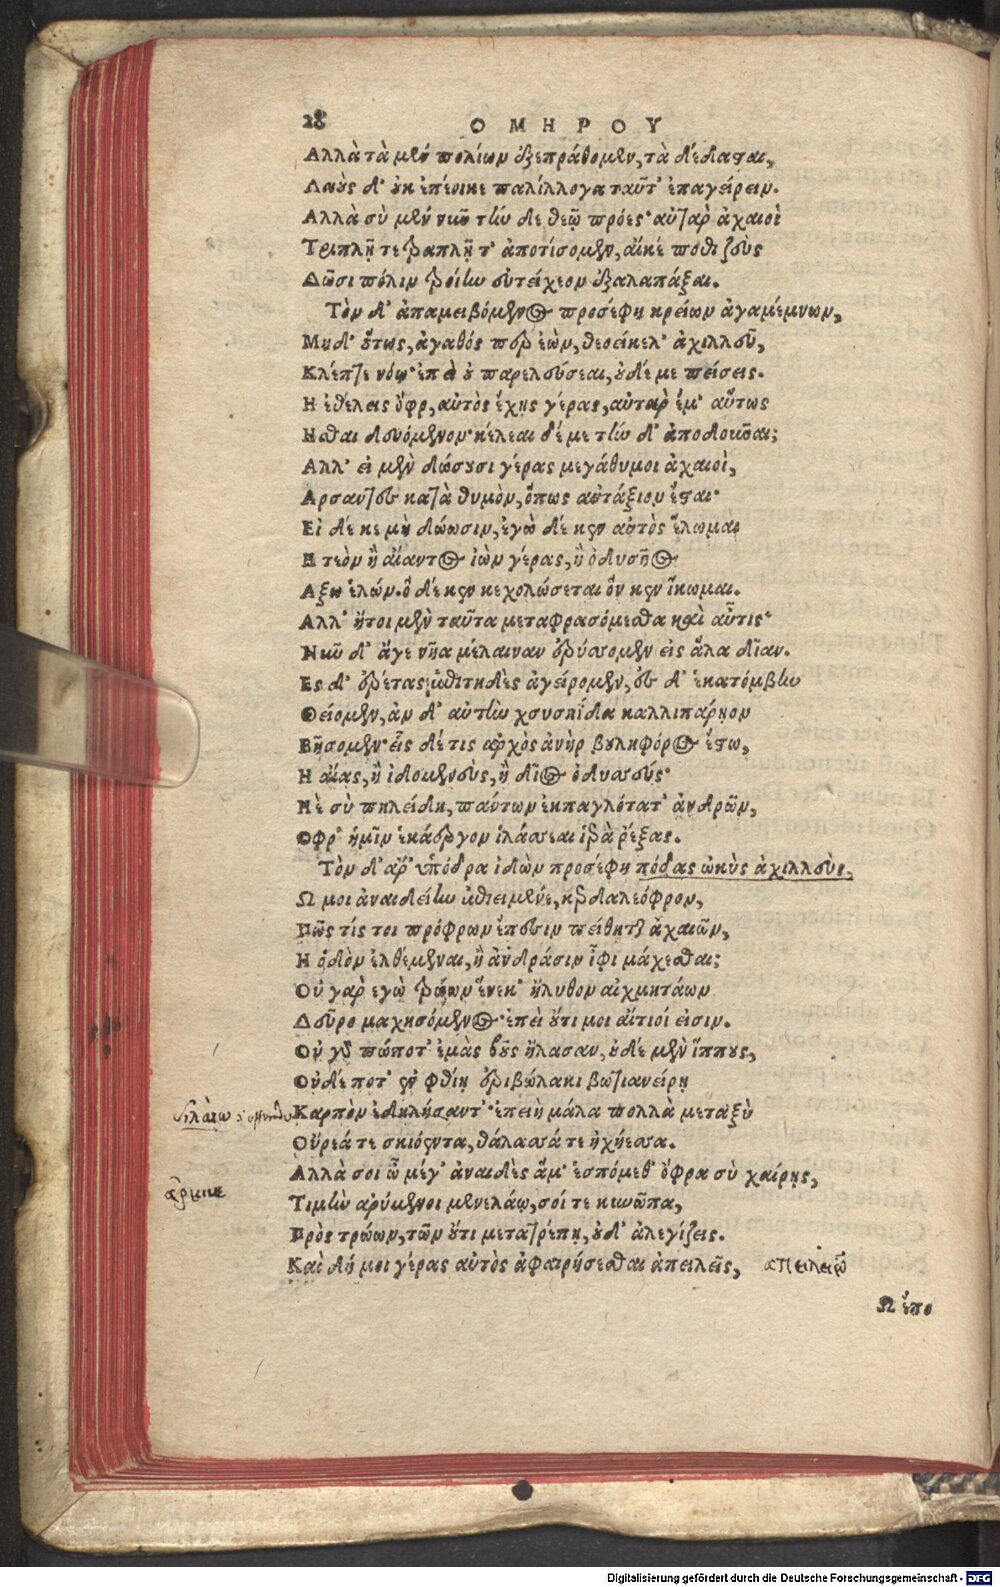 28 ΟΜΗΡΟΥ
Αλλὰ τὰ μὲν πολίων ἐξεπράθομεν, τὰ δέδασαι,
Λαοὺς δ' οὐκ ἐπέοικε παλίλλογα ταῦτ' ἐπαγείρειν.
Αλλὰ σὺ μὲν νῦν τήνδε θεῷ πρόες· αὐτὰρ ἀχαιοὶ
Τριπλῇ τετραπλῇ τ' ἀποτίσομεν, αἴκέ ποθι ζεὺς
Δῶσι πόλιν τροίην εὐτείχεον ἐξαλαπάξαι.
Τὸν δ' ἀπαμειβόμενος προσέφη κρείων ἀγαμέμνων,
Μηδ' οὕτως, ἀγαθός περ ἐὼν, θεοείκελ' ἀχιλλεῦ,
Κλέπτε νόῳ· ἐπεὶ οὐ παρελεύσεαι, οὐδέ με πείσεις.
Η ἐθέλεις ὄφρ, αὐτὸς ἔχῃς γέρας, αὐτὰρ ἔμ' αὔτως
Ησθαι δευόμενον· κέλεαι δέ με τὴν δ' ἀποδοῦναι;
Αλλ' εἰ μὲν δώσουσι γέρας μεγάθυμοι ἀχαιοὶ,
Αρσαντες κατὰ θυμὸν, ὅπως ἀντάξιον ἔσται·
Εἰ δέ κε μὴ δώωσιν, ἐγὼ δέ κεν αὐτὸς ἕλωμαι
Η τεὸν ἢ αἴαντος ἰὼν γέρας, ἢ ὀδυσῆος
Αξω ἑλών. ὁ δέ κεν κεχολώσεται ὅν κεν ἵκωμαι.
Αλλ' ἤτοι μὲν ταῦτα μεταφρασόμεσθα καὶ αὖτις·
Νῦν δ' ἄγε νῆα μέλαιναν ἐρύσσομεν εἰς ἅλα δῖαν.
Ες δ' ἐρέτας ἐπιτηδὲς ἀγείρομεν, ἐς δ' ἑκατόμβην
Θείομεν, ἂν δ' αὐτὴν χρυσηΐδα καλλιπάρῃον
Βήσομεν· εἷς δέ τις ἀρχὸς ἀνὴρ βουληφόρος ἔστω,
Η αἴας, ἢ ἰδομενεὺς, ἢ δῖος ὀδυσσεύς·
Ηὲ σὺ πηλείδη, πάντων ἐκπαγλότατ' ἀνδρῶν,
Οφρ' ἡμῖν ἑκάεργον ἱλάσσεαι ἱερὰ ῥέξας.
Τὸν δ' ἄρ' ὑπόδρα ἰδὼν προσέφη πόδας ὠκὺς ἀχιλλεύς.
Ω μοι ἀναιδείην ἐπιειμένε, κερδαλεόφρον,
Πῶς τίς τοι πρόφρων ἔπεσιν πείθηται ἀχαιῶν,
Η ὁδὸν ἐλθέμεναι, ἢ ἀνδράσιν ἶφι μάχεσθαι;
Οὐ γὰρ ἐγὼ τρώων ἕνεκ' ἤλυθον αἰχμητάων
Δεῦρο μαχησόμενος· ἐπεὶ οὔτι μοι αἴτιοί εἰσιν.
Οὐ γὰρ πώποτ' ἐμὰς βοῦς ἤλασαν, οὐδὲ μὲν ἵππους,
Οὐδέ ποτ' ἐν φθίῃ ἐριβώλακι βωτιανείρῃ
Καρπὸν ἐδηλήσαντ'· ἐπειὴ μάλα πολλὰ μεταξὺ
Οὔρεά τε σκιόεντα, θάλασσά τε ἠχήεσσα.
Αλλὰ σοι ὦ μέγ' ἀναιδὲς ἅμ' ἑσπόμεθ' ὄφρα σὺ χαίρῃς,
Τιμὴν ἀρνύμενοι μενελάῳ, σοί τε κυνῶπα,
Πρὸς τρώων, τῶν οὔτι μετατρέπῃ, οὐδ' ἀλεγίζεις.
Καὶ δή μοι γέρας αὐτὸς ἀφαιρήσεσθαι ἀπειλεῖς,
Ω ἔπο
Digitalisierung gefördert durch die Deutsche Forschungsgemeinschaft - DFG